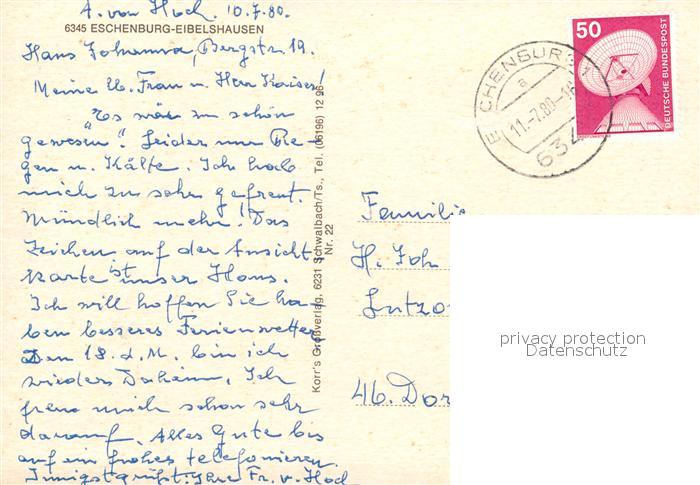 A. von Hoch. 10.7.80.
6345 ESCHENBURG-EIBELSHAUSEN
Haus Johanna, Bergstr. 19.
Meine lb. Frau u. Herr Kaiser!
"Es wär zu schön
gewesen". Leider nur Re-
gen u. Kälte. Ich hab
mich zu sehr gefreut.
Mündlich mehr! Das
Zeichen auf der Ansicht
skarte ist unser Haus.
Ich will hoffen Sie ha-
ben besseres Ferienwetter
Den 18. d. M. bin ich
wieder Daheim. Ich
freu mich schon sehr
darauf. Alles Gute bis
auf ein frohes telefonieren.
Innigst grüßt, Ihre Fr. v. Hoch
Korr's Großverlag, 6231 Schwalbach/Ts., Tel. (06196) 12 96
Nr. 22
50
DEUTSCHE BUNDESPOST
ESCHENBURG 1
a
11.-7.80-16
634
Familie
H. Joh
Lutzo
46. Dor
privacy protection
Datenschutz